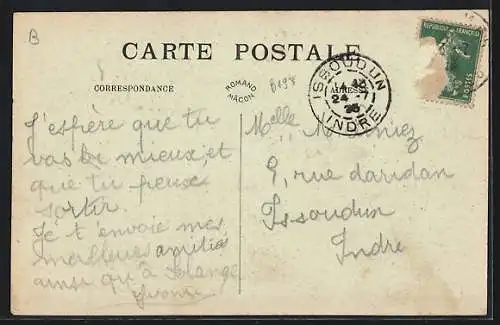 B
CARTE POSTALE
CORRESPONDANCE
ROMAND
MÂCON
B198
ADRESSE
ISSOUDUN
24
25
INDRE
J'espère que tu
vas bi mieux et
que tu peux
sortir.
Je t'envoie mes
meilleures amitiés
ainsi qu'à Solange
Yvonne
Melle
9, rue daridan
Issoudun
Indre